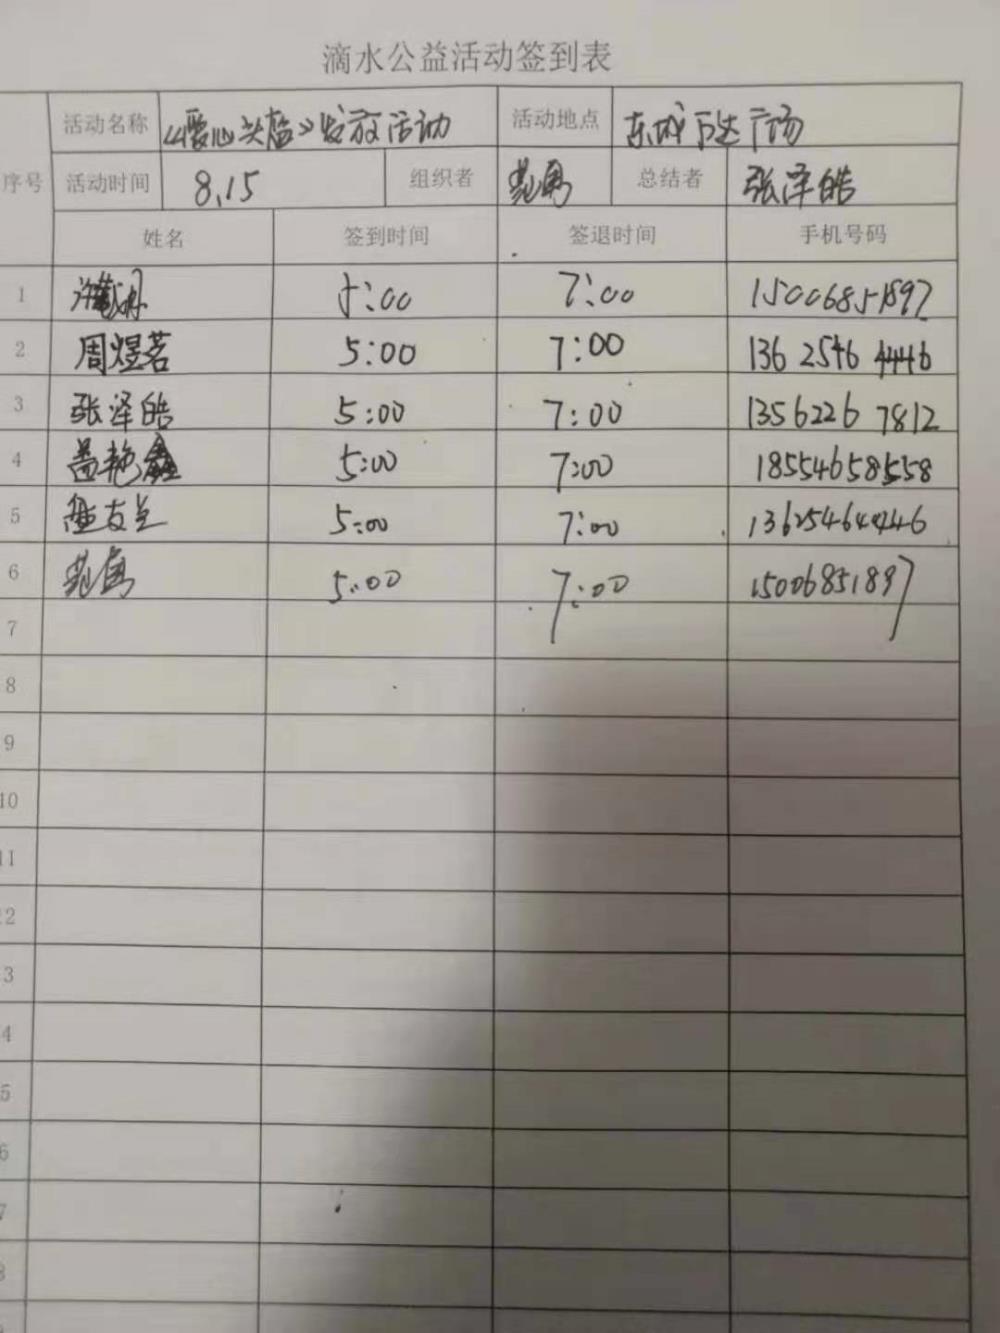 滴水公益活动签到表
活动名称 《爱心头盔》发放活动 活动地点 东城万达广场
序号 活动时间 8.15 组织者 总结者 张泽皓
姓名 签到时间 签退时间 手机号码
1 5:00 7:00 15006851897
2 周煜茗 5:00 7:00 136 2546 4446
3 张泽皓 5:00 7:00 1356226 7812
4 盖艳鑫 5:00 7:00 18554658558
5 5:00 7:00 13625464446
6 5:00 7:00 15006851897
7
8
9
10
11
2
3
4
5
6
7
8